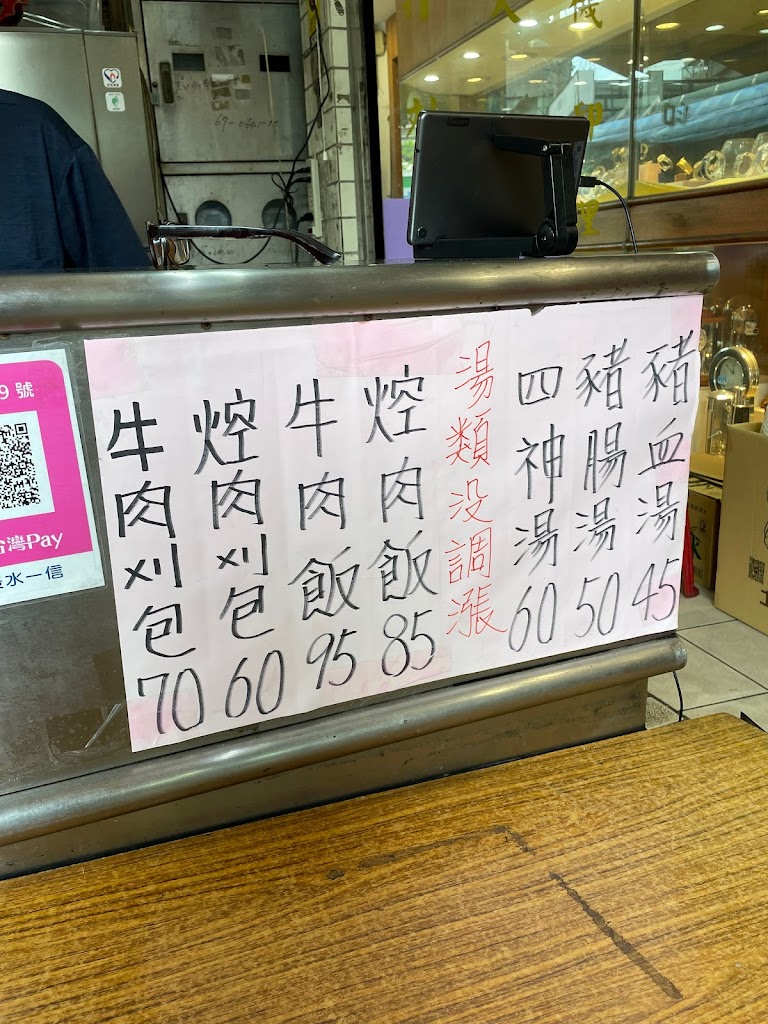 豬血湯45
豬腸湯50
四神湯60
湯類没調漲
焢肉飯85
牛肉飯95
焢肉刈包60
牛肉刈包70
9號
台灣Pay
水一信